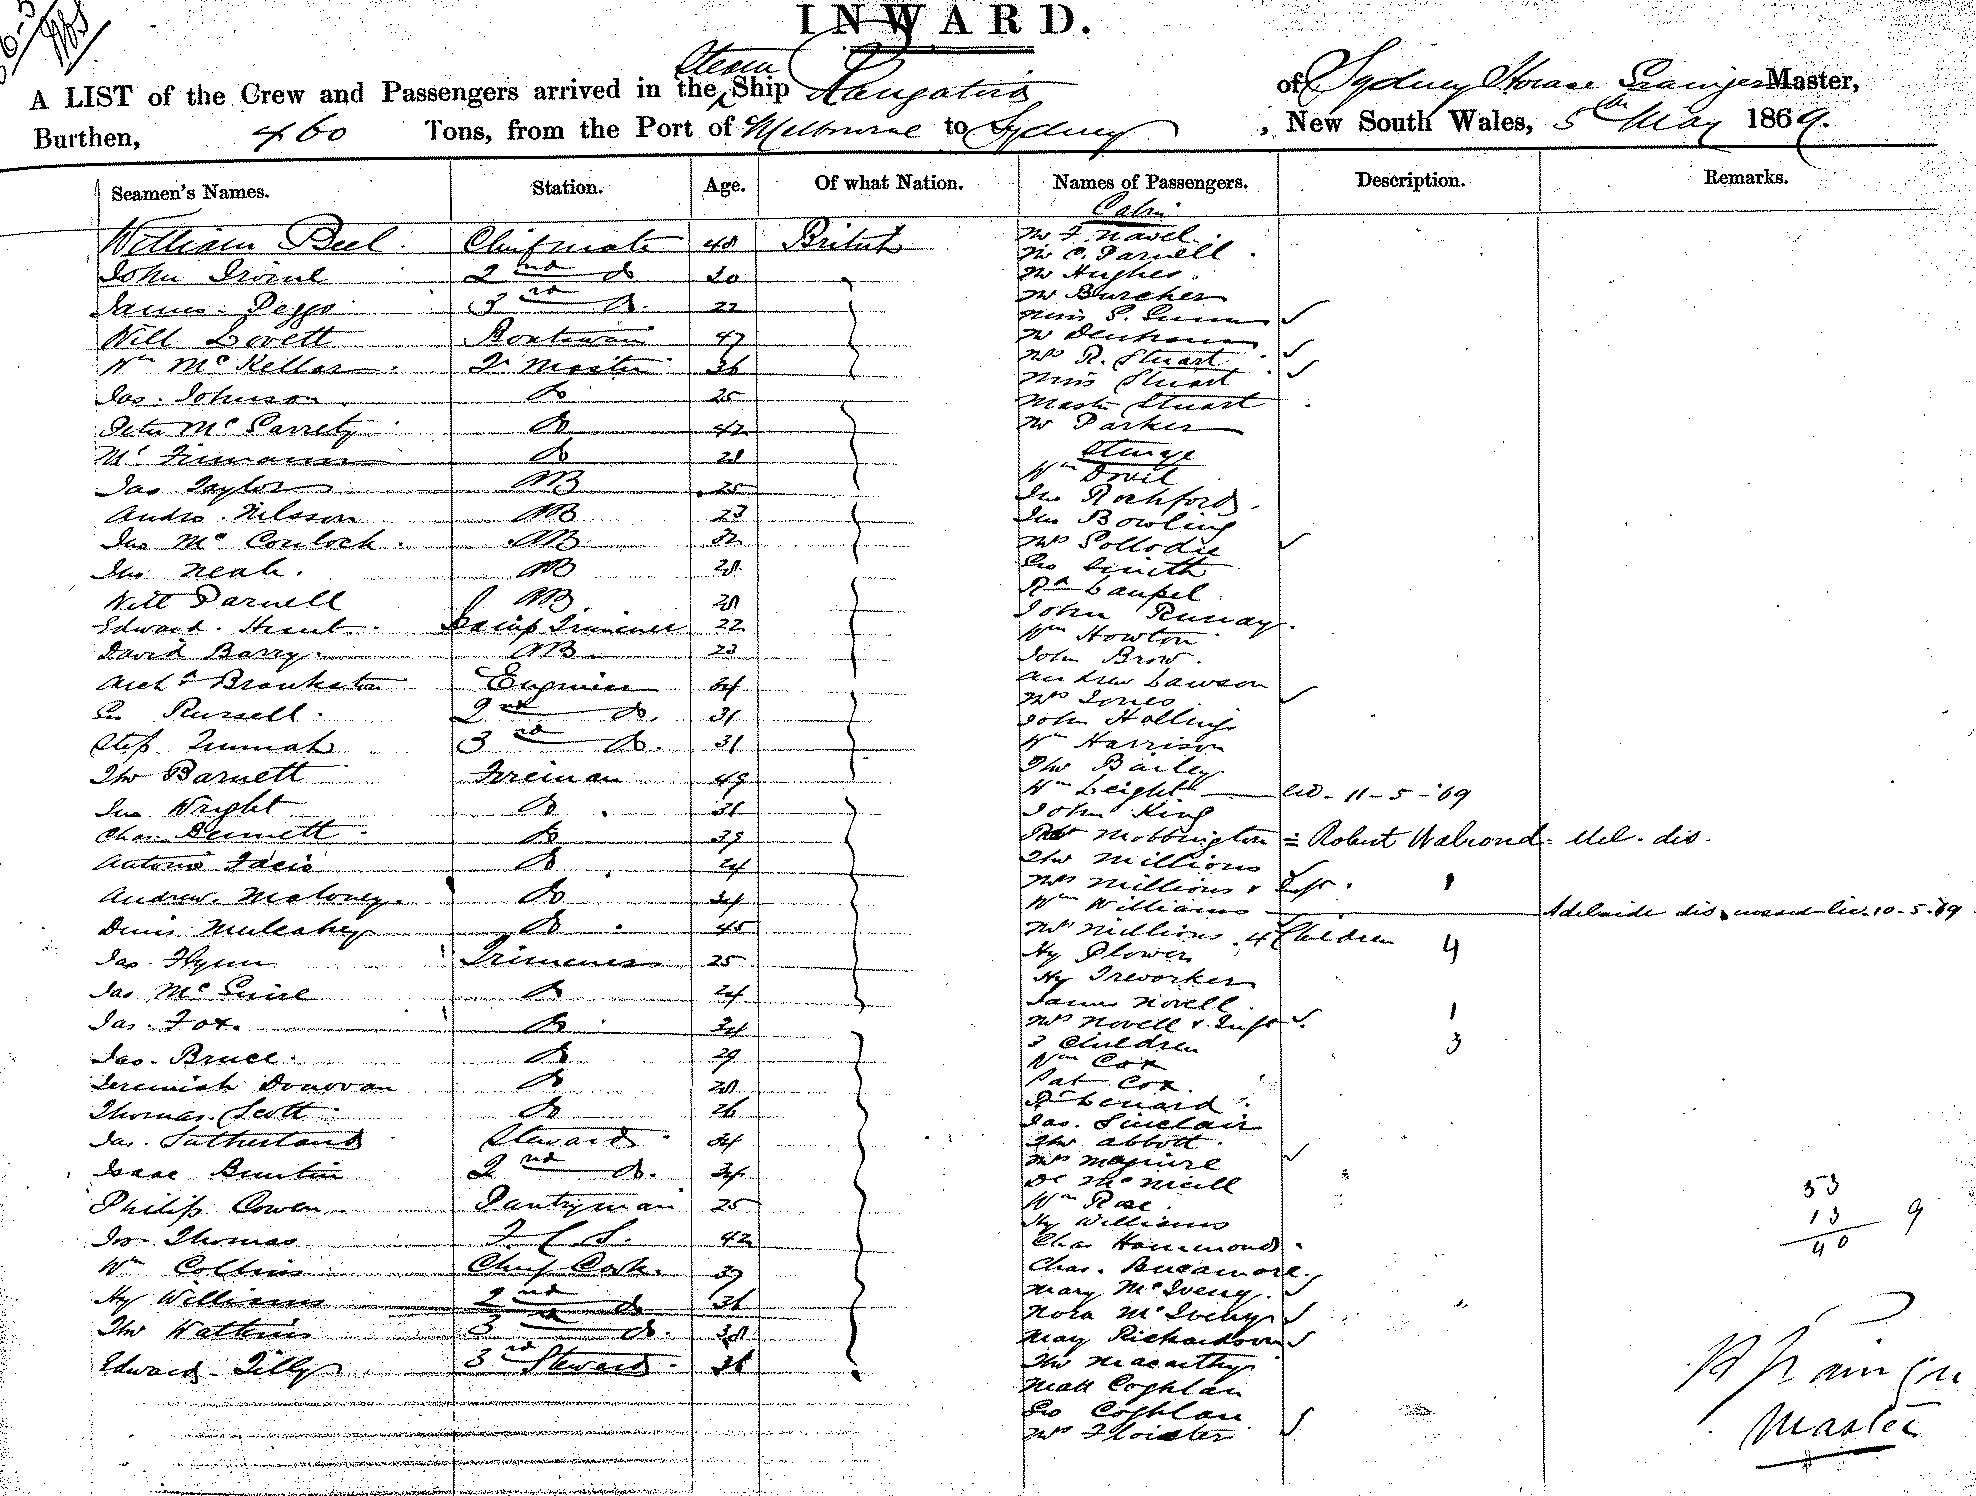 INWARD.
A LIST of the Crew and Passengers arrived in the Steam Ship Rangatira of Sydney Horace Grainger Master,
Burthen, 460 Tons, from the Port of Melbourne to Sydney, New South Wales, 5th May 1869.
Seamen's Names. Station. Age. Of what Nation. Names of Passengers. Description. Remarks.
William Beel Chief mate 40 British
John Irvine 2nd Do 30
James Peggs 3rd Do 22
Will Lovett Boatswain 47
Wm McKellar Qr Master 36
Jas. Johnson Do 25
Peter McGarrety Do 42
Do 28
Jas Taylor AB 25
Andw. Nilsson AB 23
Jno McCouloch AB 32
Jno Neah. AB 28
Will Parnell AB 28
Edward Hunt Trimmer 22
David Barry AB 23
Archd Brankston Engineer 34
Geo Russell 2nd Do. 31
Step 3rd Do. 31
Tho Barnett Fireman 49
Jno Wright Do 36
Chas Bennett Do 39
Antonio Do 24
Andrew Maloney Do 34
Denis Mulcahey Do 45
Jas. Flynn Trimmer 25
Jas McGuire Do 24
Jas. Fox. Do 34
Jas. Bruce. Do 29
Jeremiah Donovan Do 28
Thomas Scott Do 26
Jas. Sutherland Steward 34
Isaac Buntin 2nd Do. 34
Philip Cowen Pantryman 25
Jno Thomas F. C. S. 42
Wm Collins Chief Cook. 39
Hy Williams 2nd Do 36
Tho Watkins 3rd Do. 38
Edward Tilly 3rd Steward 36
Cabin
Mr F. Navel
Mr C. Parnell
Mr Hughes
Mr Burcher
Miss S. Gunn
Mr Denham
Mrs R. Stuart
Miss Stuart
Master Stuart
Mr Parker
Steerage
Wm Dovil
Jno Rochford
Jno Bowling
Mrs Sollodie
Geo Smith
Rd Laupel
John
Wm Howton
John Brow.
Andrew Lawson
Mrs Jones
John Hollings
Wm Harrison
Tho Bailey
Wm Leight lic - 11-5-'69
John King
Robt Mobbington = Robert Walrond - Mel. dis.
Tho Millions
Mrs Millions & Inft. 1
Wm Williams Adelaide dis lic. 10-5-69
Mrs Millions 4 Children 4
Hy Plower
Hy Treworker
James Novell
Mrs Novell & Inft 1
3 Children 3
Wm Cox
Pat Cox
Lenard
Jas. Sinclair
Tho Abbott
Mrs Maguire
Dl McNeill
Wm Rae
Hy Williams
Chas Hammond
Chas. Bucamore
Mary McIveny
Nora McIveny
May Richardson
Tho Macarthy
Matt Coghlan
Geo Coghlan
Mrs Floister
53
13 9
40
Master